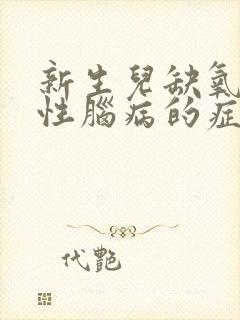 新生兒缺氧
性腦病的症
代艷